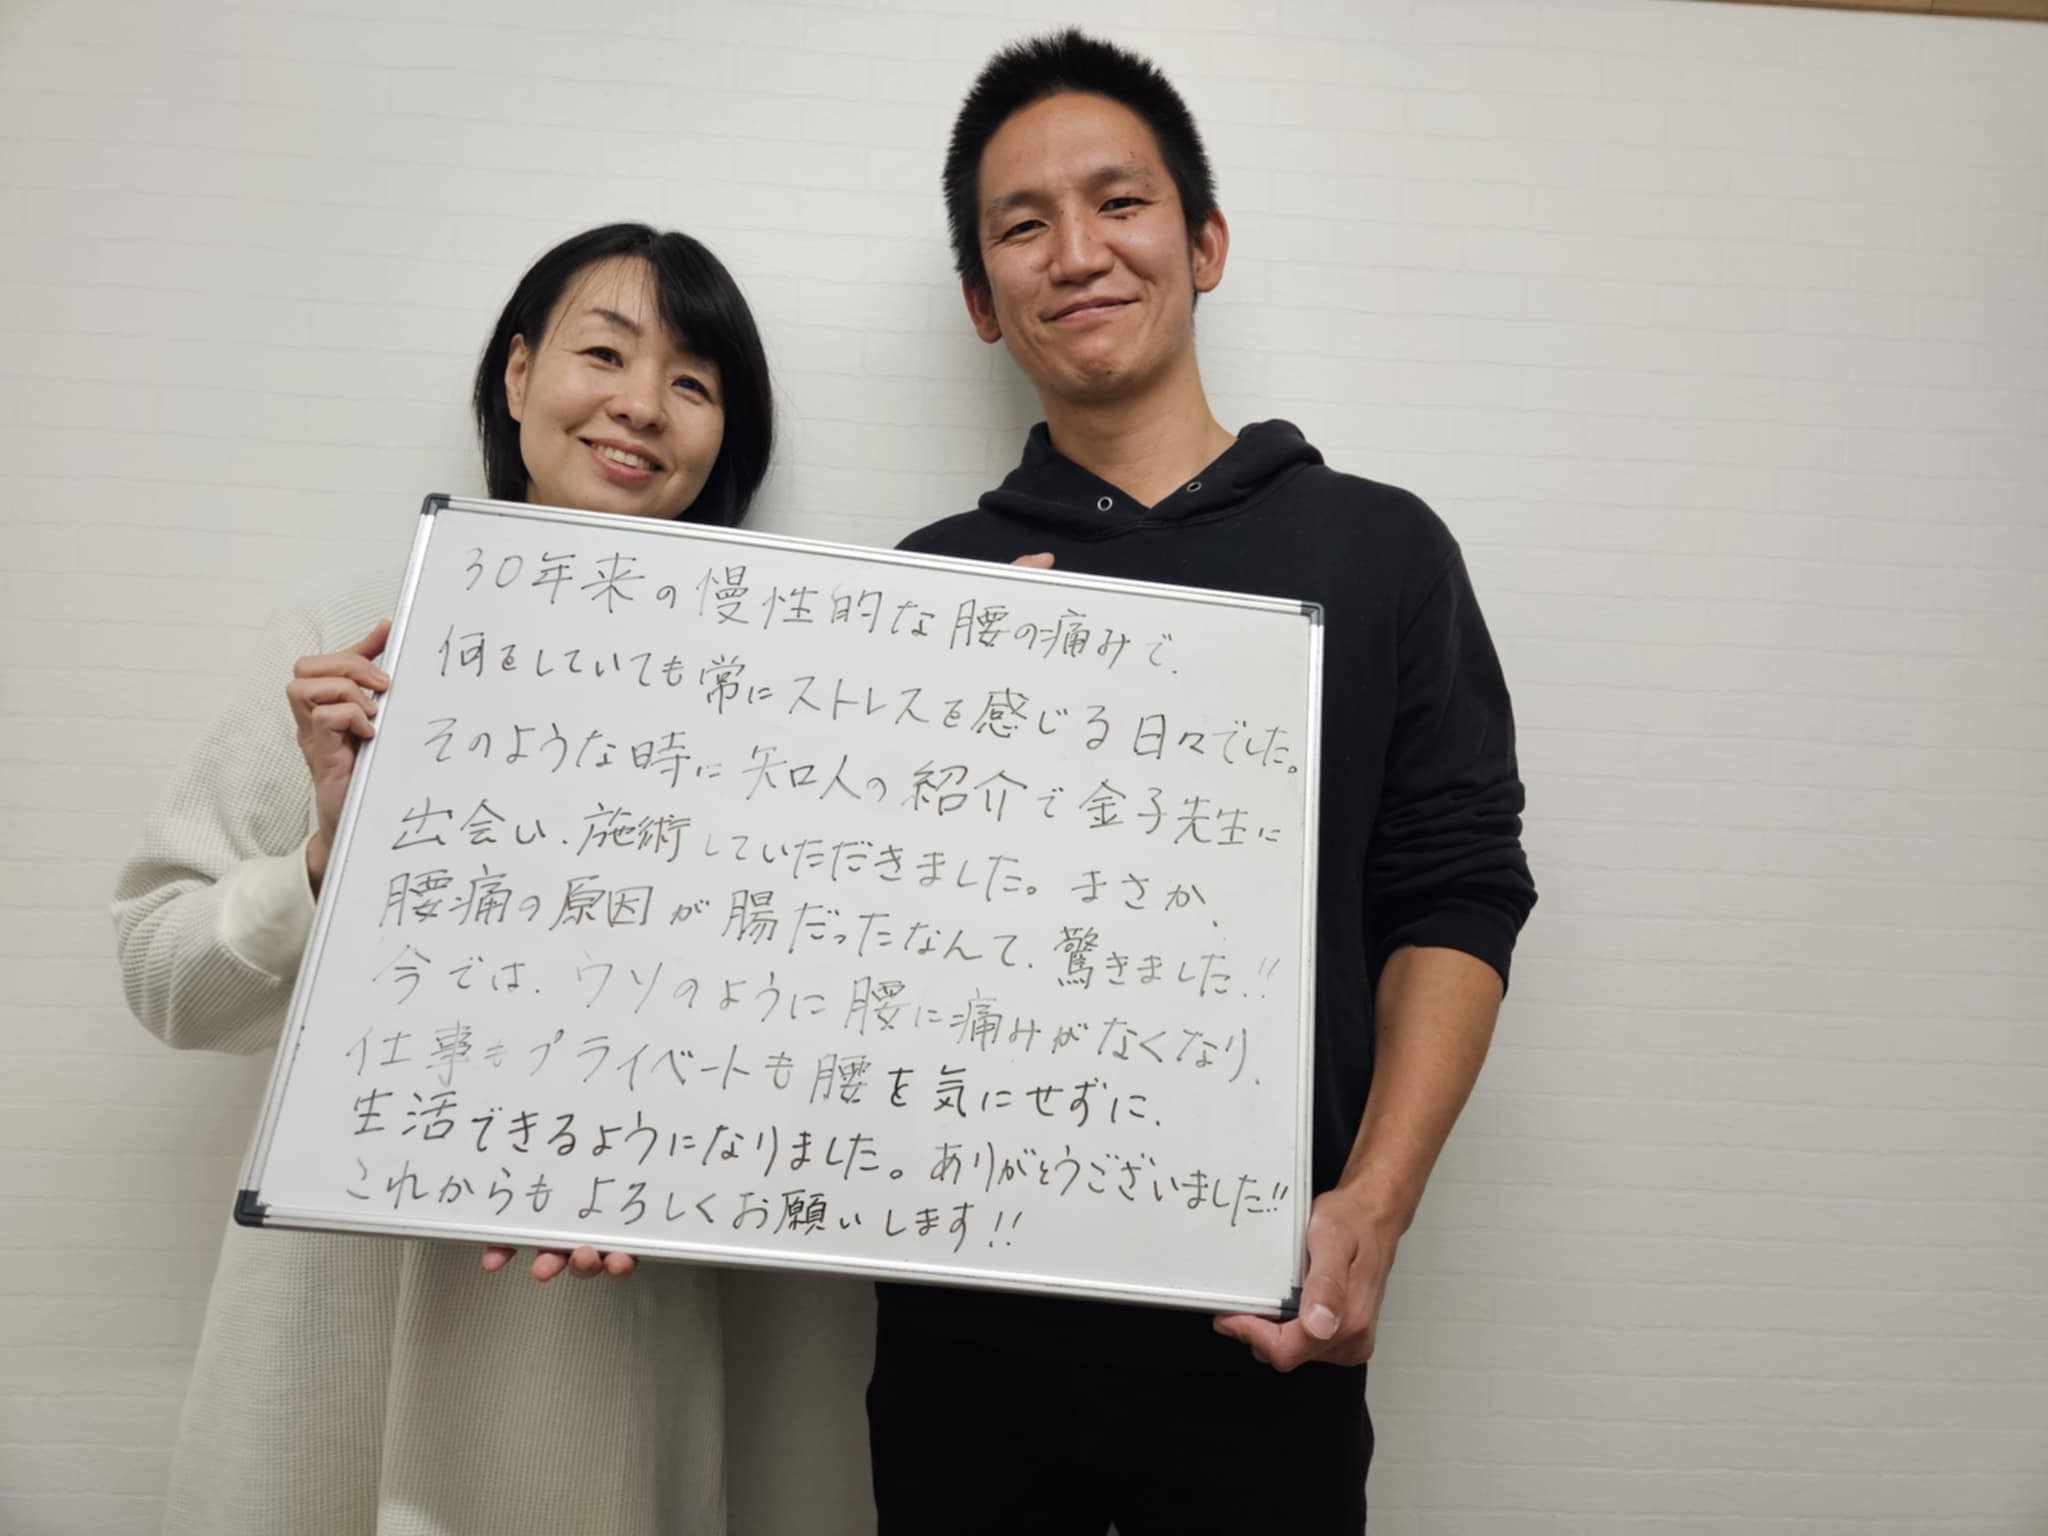 30年来の慢性的な腰の痛みで、
何をしていても常にストレスを感じる日々でした。
そのような時に知人の紹介で金子先生に
出会い、施術していただきました。まさか、
腰痛の原因が腸だったなんて、驚きました!!
今では、ウソのように腰に痛みがなくなり、
仕事もプライベートも腰を気にせずに、
生活できるようになりました。ありがとうございました!!
これからもよろしくお願いします!!